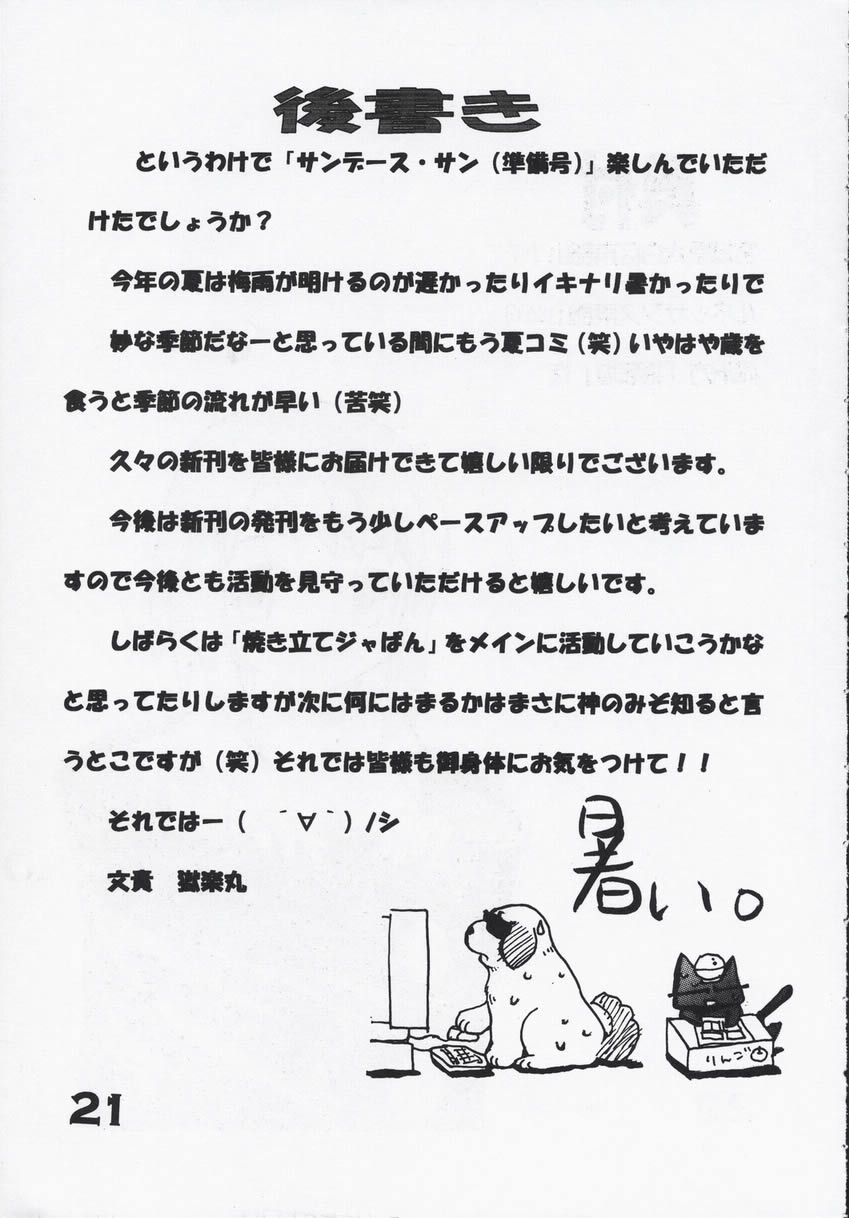 後書き
というわけで「サンデース・サン（準備号）」楽しんでいただ
けたでしょうか？
今年の夏は梅雨が明けるのが遅かったりイキナリ暑かったりで
妙な季節だなーと思っている間にもう夏コミ（笑）いやはや歳を
食うと季節の流れが早い（苦笑）
久々の新刊を皆様にお届けできて嬉しい限りでございます。
今後は新刊の発刊をもう少しペースアップしたいと考えていま
すので今後とも活動を見守っていただけると嬉しいです。
しばらくは「焼き立てジャぱん」をメインに活動していこうかな
と思ってたりしますが次に何にはまるかはまさに神のみぞ知ると言
うとこですが（笑）それでは皆様も御身体にお気をつけて！！
それではー（　´∀｀）/シ
文責　獄楽丸
暑い。
りんご
21